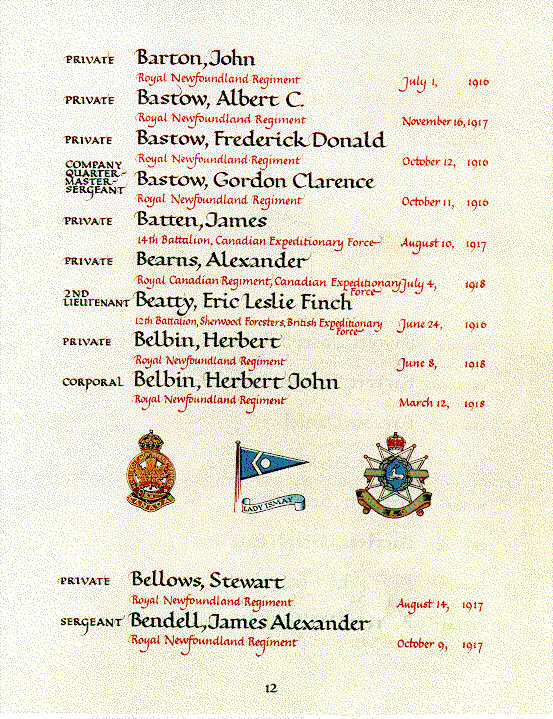 PRIVATE Barton, John
Royal Newfoundland Regiment July 1, 1916
PRIVATE Bastow, Albert C.
Royal Newfoundland Regiment November 16, 1917
PRIVATE Bastow, Frederick Donald
Royal Newfoundland Regiment October 12, 1916
COMPANY QUARTER-MASTER-SERGEANT Bastow, Gordon Clarence
Royal Newfoundland Regiment October 11, 1916
PRIVATE Batten, James
14th Battalion, Canadian Expeditionary Force August 10, 1917
PRIVATE Bearns, Alexander
Royal Canadian Regiment, Canadian Expeditionary Force July 4, 1918
2ND LIEUTENANT Beatty, Eric Leslie Finch
12th Battalion, Sherwood Foresters, British Expeditionary Force June 24, 1916
PRIVATE Belbin, Herbert
Royal Newfoundland Regiment June 8, 1918
CORPORAL Belbin, Herbert John
Royal Newfoundland Regiment March 12, 1918
LADY ISMAY
PRIVATE Bellows, Stewart
Royal Newfoundland Regiment August 14, 1917
SERGEANT Bendell, James Alexander
Royal Newfoundland Regiment October 9, 1917
12